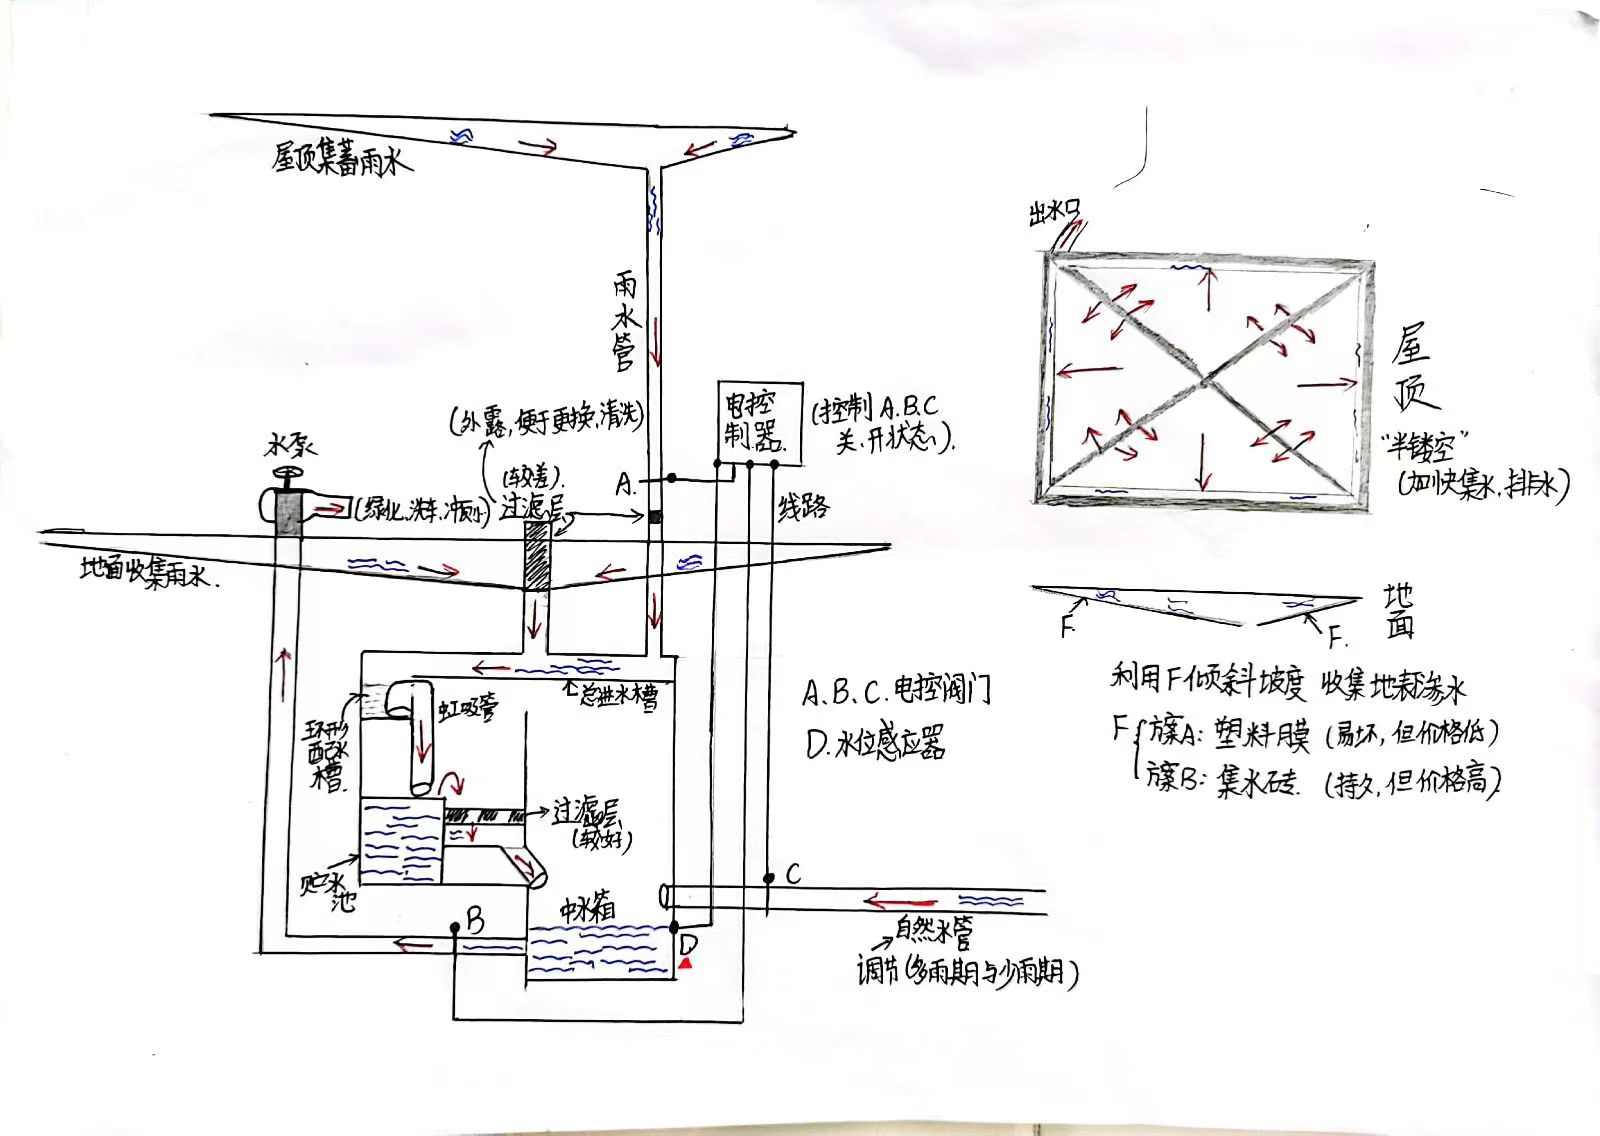 屋顶集蓄雨水
雨水管
(外露,便于更换,清洗)
水泵
(较差).
(绿化,洗车,冲厕所)
过滤层
A.
电控
制器.
(控制A.B.C
关.开状态).
线路
地面收集雨水.
总进水槽
虹吸管
环形
配水
槽.
过滤层
(较好)
贮水
池
中水箱
B
C
D
自然水管
调节(多雨期与少雨期)
A.B.C.电控阀门
D.水位感应器
出水口
屋顶
"半镂空"
(加快集水.排水)
地面
F.
F.
利用F倾斜坡度 收集地表渗水
F
方案A:塑料膜(易坏,但价格低)
方案B:集水砖.(持久,但价格高)